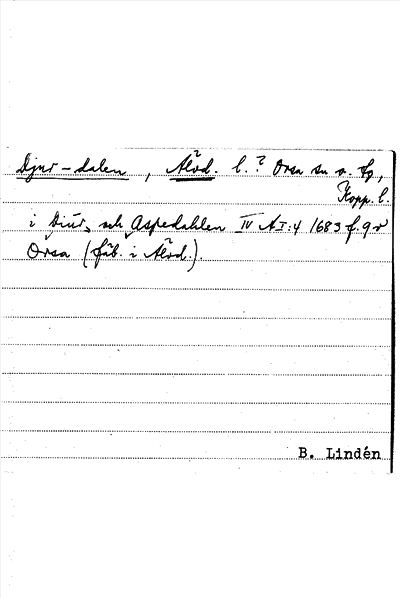 Djur-dalen, Älvd. l.? Orsa sn o. fg,
Kopp. l.
i Diur, och Aspedahlen IV A I:4 1683 f. 9 v
Orsa (fäb. i Älvd.).
B. Lindén